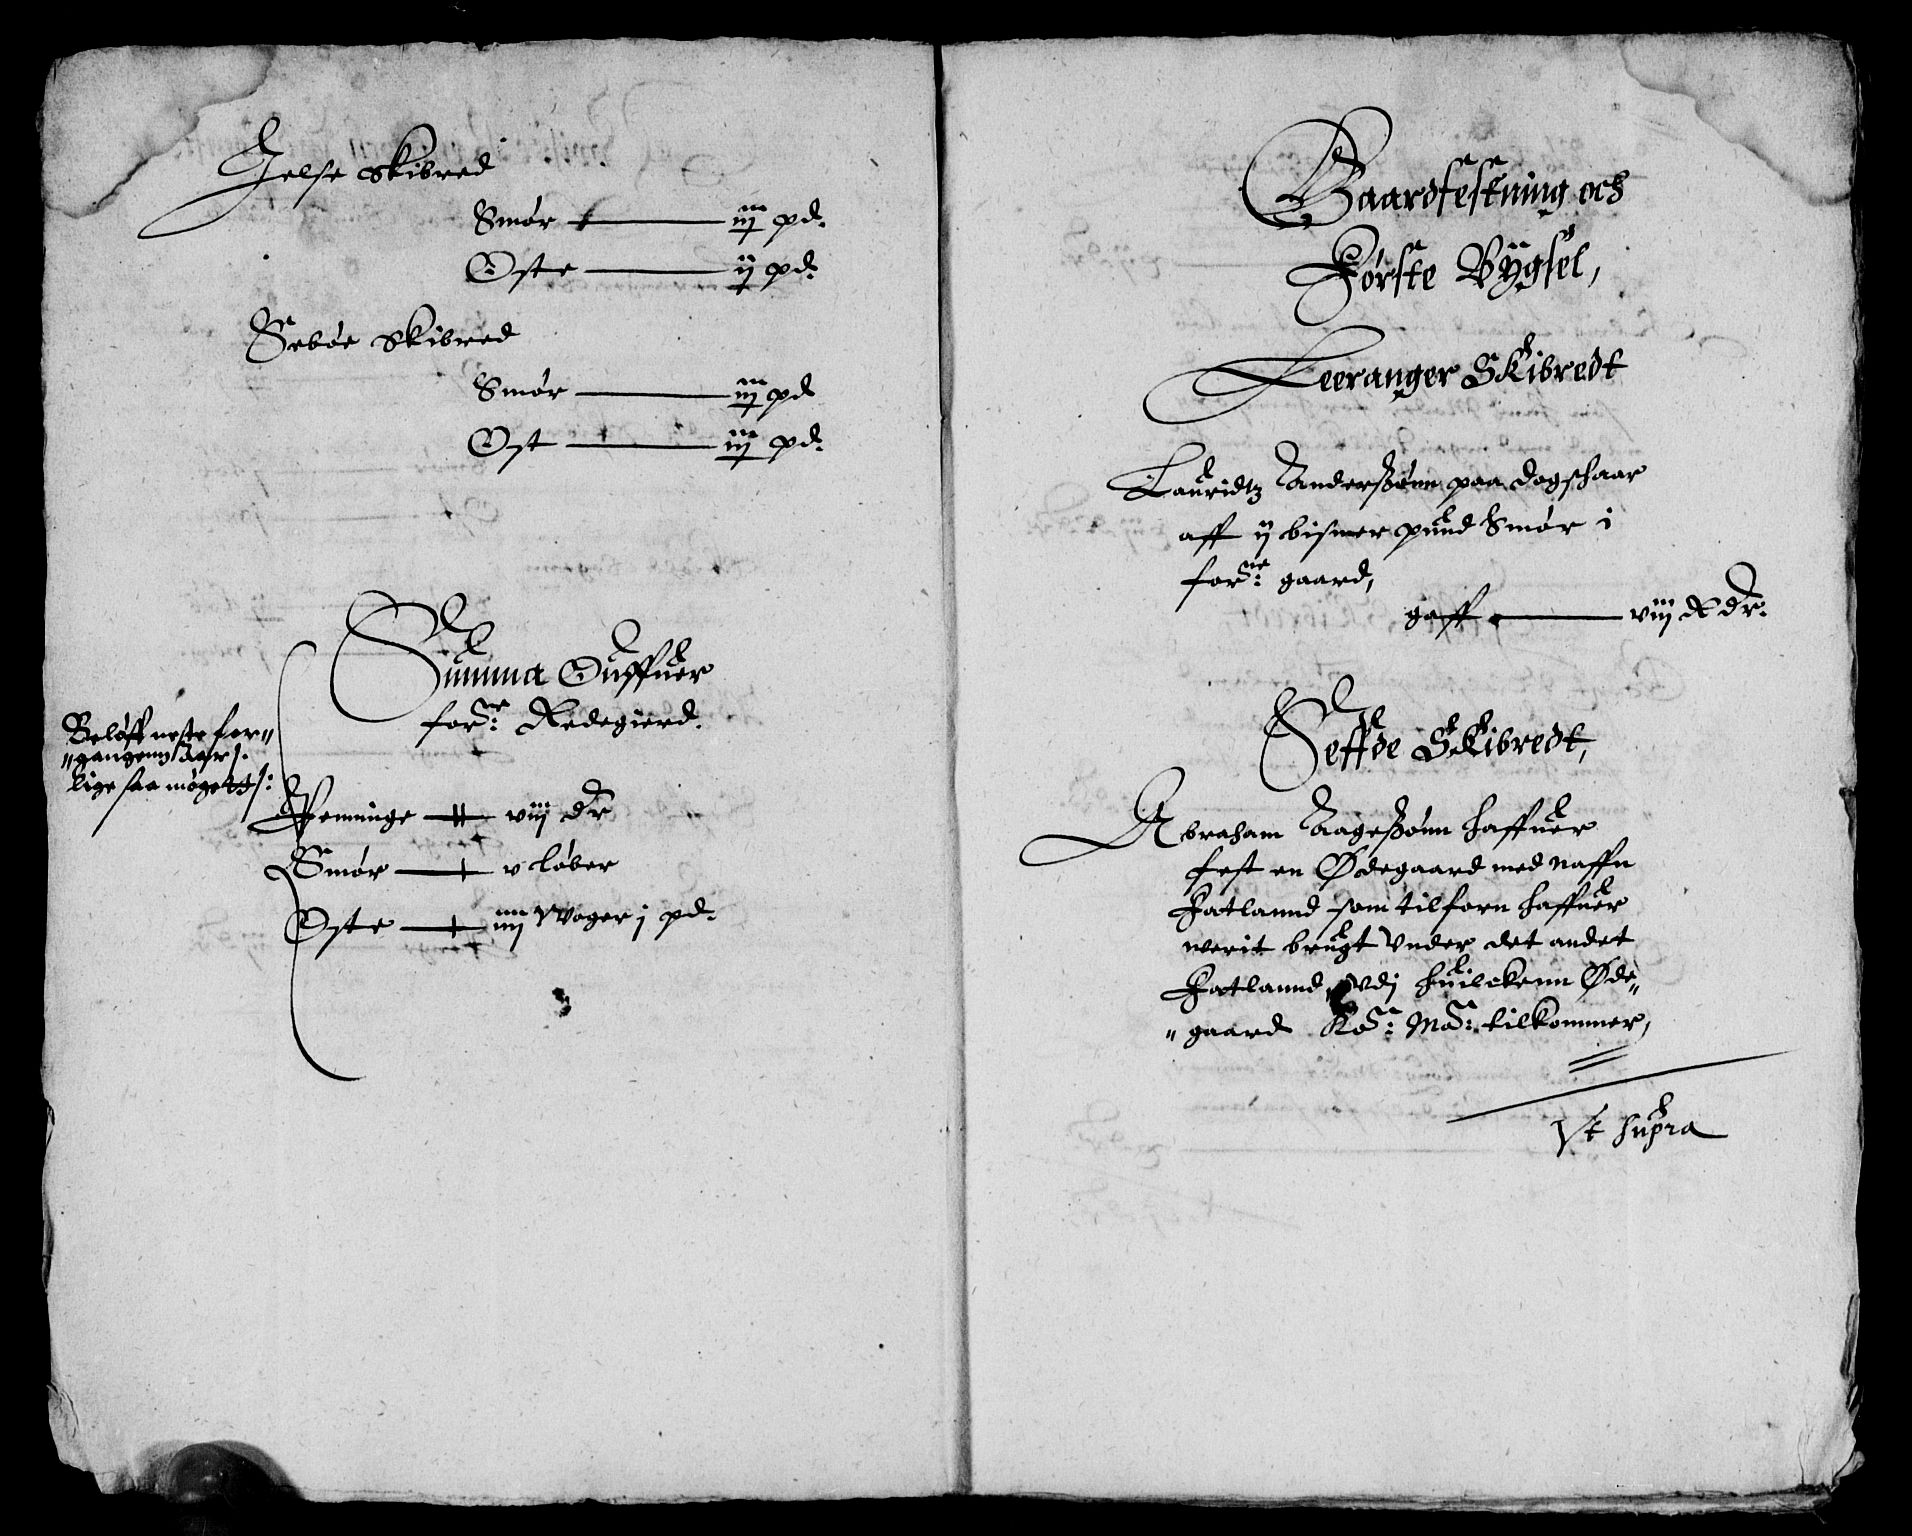 Jelse Skibred
Smør — iij pd.
Oste — ij pd.
Sebøe Skibred
Smør — iij pd
Ost — iij pd.
Summa Offuer
forne: Redegierd.
Beløff neste for„
„gangenn Aar
lige saa møgett:
Penninge — viij dr
Smør — v løber
Oste — iiij Woger j pd.
Gaardfestning och
Første Bygsel,
Leeranger Skibredt
Lauridtz Anderßønn paa dogshaar
aff ij bismer pund Smør i
forne: gaard,
gaff — viij R dr.
Seffde Skibredt,
Abraham Aageßønn haffuer
fest en Ødegaard med naffn
Hatlannd som tilforn haffuer
werit brugt vnder det andet
Hatlannd, vdj huilckenn Øde„
„gaard Ko: Ma: tilkommer,
Vt supra